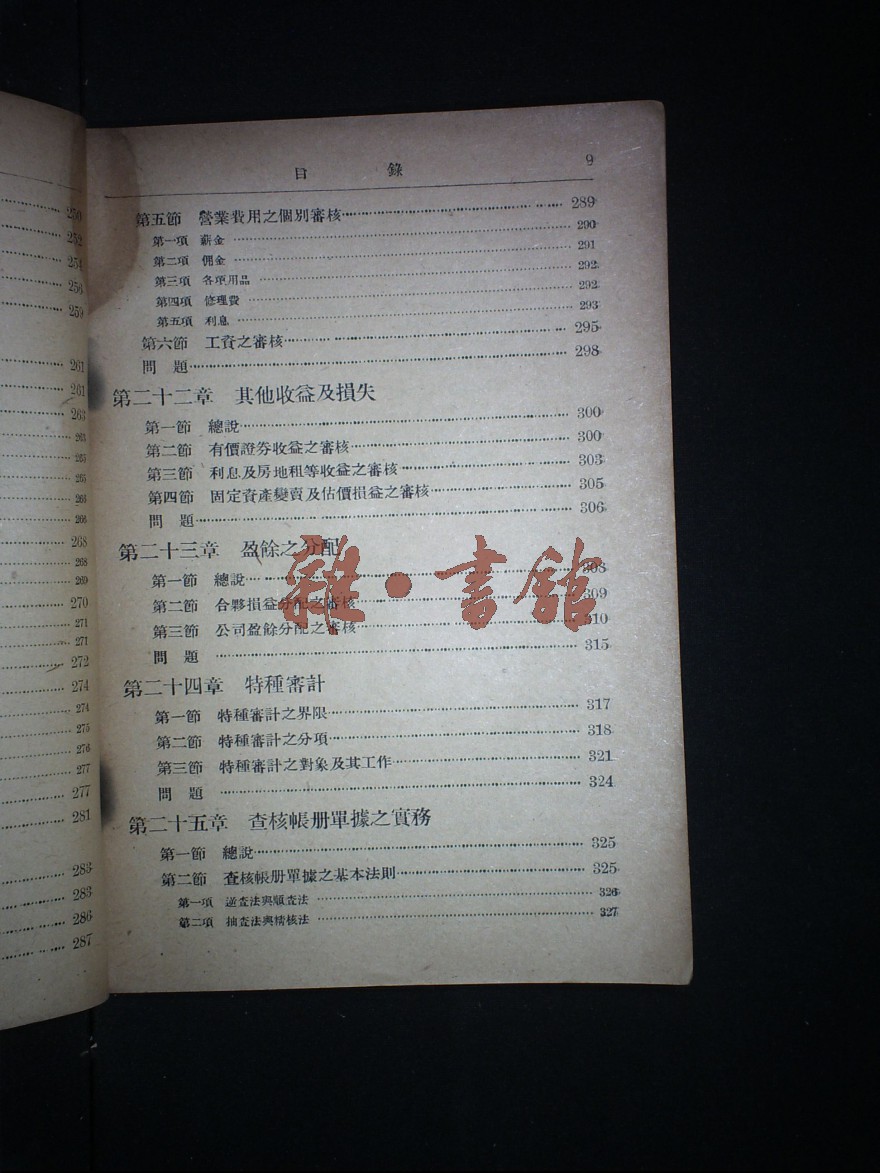 250
252
254
256
259
261
261
263
263
265
265
266
266
268
268
269
270
271
271
272
274
274
275
276
277
277
281
283
283
286
287
目 錄 9
第五節 營業費用之個別審核 289
第一項 薪金 290
第二項 佣金 291
第三項 各項用品 292
第四項 修理費 292
第五項 利息 293
第六節 工資之審核 295
問 題 298
第二十二章 其他收益及損失
第一節 總說 300
第二節 有價證券收益之審核 300
第三節 利息及房地租等收益之審核 303
第四節 固定資產變賣及估價損益之審核 305
問 題 306
第二十三章 盈餘之分配
第一節 總說 308
第二節 合夥損益分配之審核 309
第三節 公司盈餘分配之審核 310
問 題 315
雜·書館
第二十四章 特種審計
第一節 特種審計之界限 317
第二節 特種審計之分項 318
第三節 特種審計之對象及其工作 321
問 題 324
第二十五章 查核帳册單據之實務
第一節 總說 325
第二節 查核帳册單據之基本法則 325
第一項 逆查法與順查法 326
第二項 抽查法與精核法 327